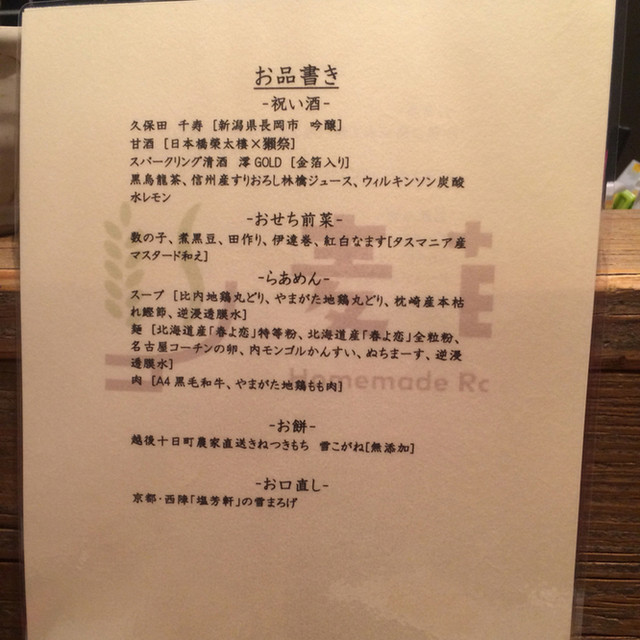 お品書き
-祝い酒-
久保田 千寿 [新潟県長岡市 吟醸]
甘酒 [日本橋榮太樓×獺祭]
スパークリング清酒 澪GOLD [金箔入り]
黒烏龍茶、信州産すりおろし林檎ジュース、ウィルキンソン炭酸
水レモン
-おせち前菜-
数の子、煮黒豆、田作り、伊達巻、紅白なます[タスマニア産
マスタード和え]
-らあめん-
スープ [比内地鶏丸どり、やまがた地鶏丸どり、枕崎産本枯
れ鰹節、逆浸透膜水]
麺 [北海道産「春よ恋」特等粉、北海道産「春よ恋」全粒粉、
名古屋コーチンの卵、内モンゴルかんすい、ぬちまーす、逆浸
透膜水]
肉 [A4黒毛和牛、やまがた地鶏もも肉]
Homemade
-お餅-
越後十日町農家直送きねつきもち 雪こがね[無添加]
-お口直し-
京都・西陣「塩芳軒」の雪まろげ